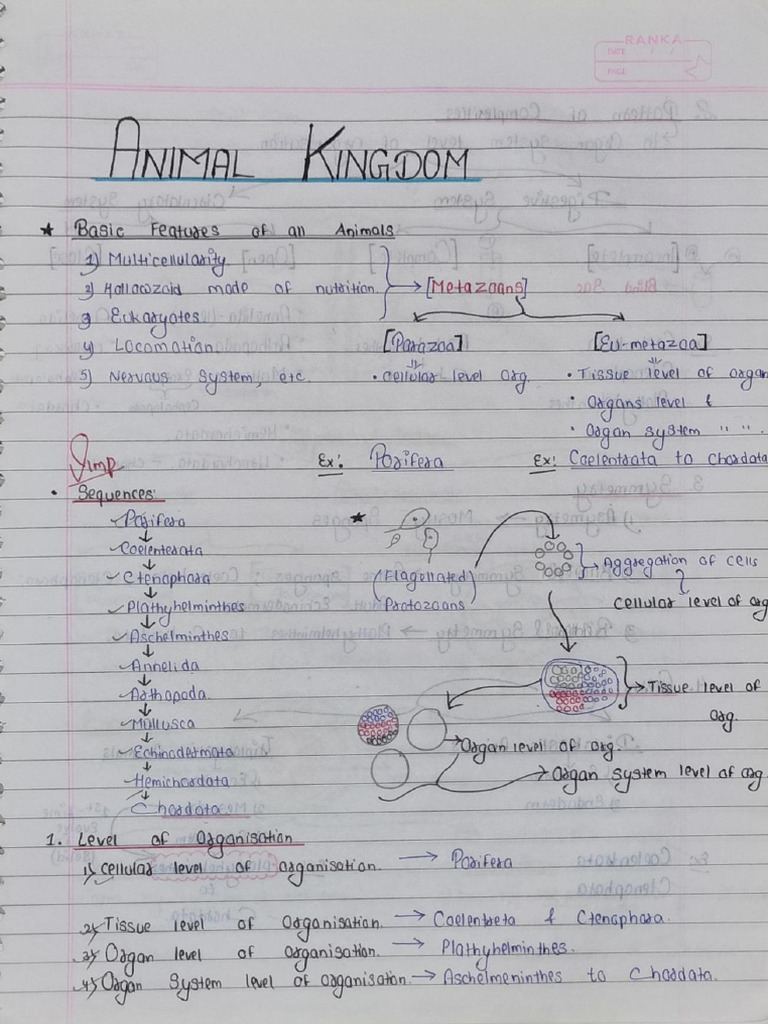 RANKA
DATE / /
PAGE
ANIMAL KINGDOM
★ Basic Features of an Animals
1) Multicellularity
2) Hollaozoid mode of nutrition → [Metazoans]
3) Eukaryotes
4) Locomotion [Parazoa] [Eu-metazoa]
5) Nervous system, etc. • cellular level org. • Tissue level of organ
• Organs level &
• Organ system " " .
Vimp Ex: Porifera Ex: Coelentrata to Chordata
• Sequences:
Porifera ★
↓
Coelenterata → Aggregation of cells
↓
Ctenophora (Flagellated
↓
Plathyhelminthes Protozoans) cellular level of org
↓
Aschelminthes
↓
Annelida
↓
Arthopoda → Tissue level of
↓
Mullusca org.
↓
Echinodermata → Organ level of org.
↓
Hemichordata → Organ system level of org.
↓
Chordata
1. Level of Organisation
1) cellular level of organisation. → Porifera
2) Tissue level of Organisation. → Coelentreta & Ctenophora.
3) Organ level of organisation. → Plathyhelminthes.
4) Organ System level of organisation. → Aschelmeninthes to Chordata.